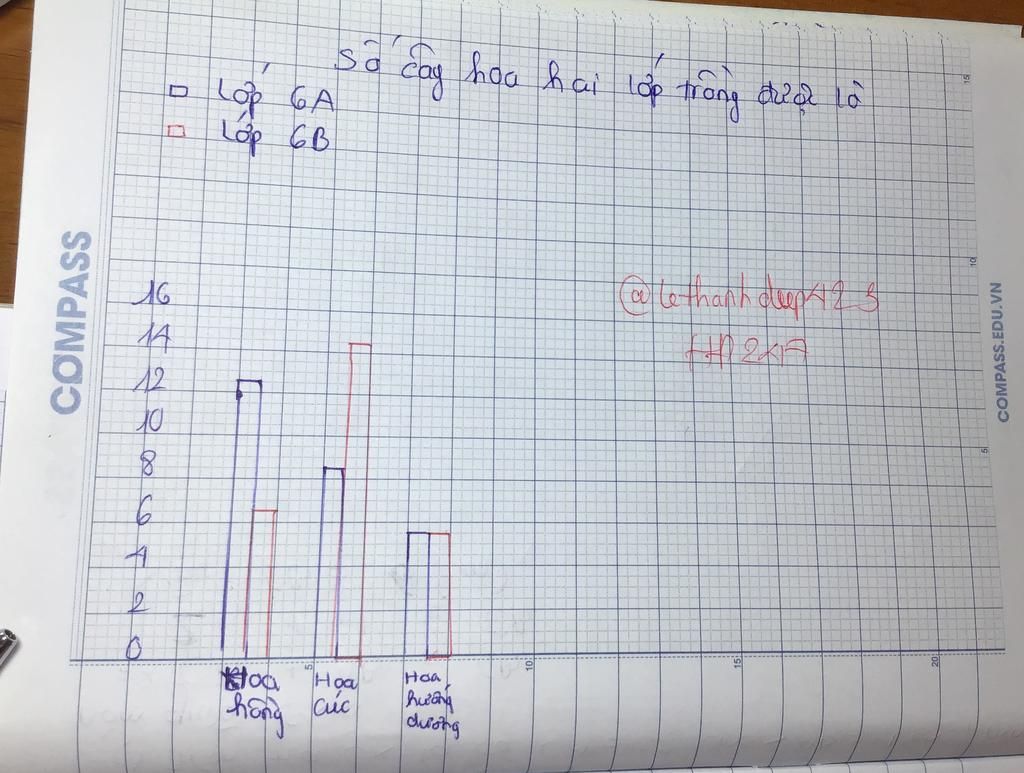 Số cây hoa hai lớp trồng được là
Lớp 6A
Lớp 6B
COMPASS
COMPASS.EDU.VN
16
14
12
10
8
6
4
2
0
5
10
15
20
5
10
15
Hoa hồng
Hoa cúc
Hoa hướng dương